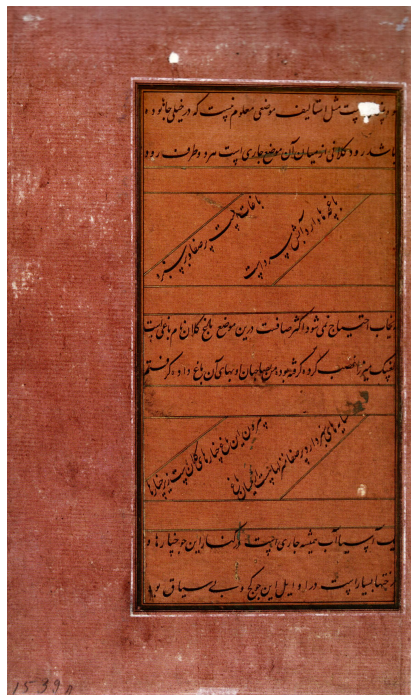 مثل استالیف موضعی معلوم نیست که در خیلی جاها بوده
باشد رود کلانی از میان آن موضع جاری است هر دو طرف رود
باغات است پر صفا و سبز
باغچه‌ها دارد و آبش سرد است
احتیاج نمی‌شود اکثر صاف است درین موضع باغ کلان نام باغی است
الغ بیک میرزا غصب کرده گرفته بود من بصاحبان او بهای آن باغ داده گرفتم
بیرون این باغ چنارهای کلان است زیر چنارها
سایه‌های سبزدار و پر صفا میان باغ
یک آسیا آب همیشه جاری است در کنار این جو چنارها و
درختها بسیار است در اوایل این جو کج و بی سیاق بود
1539